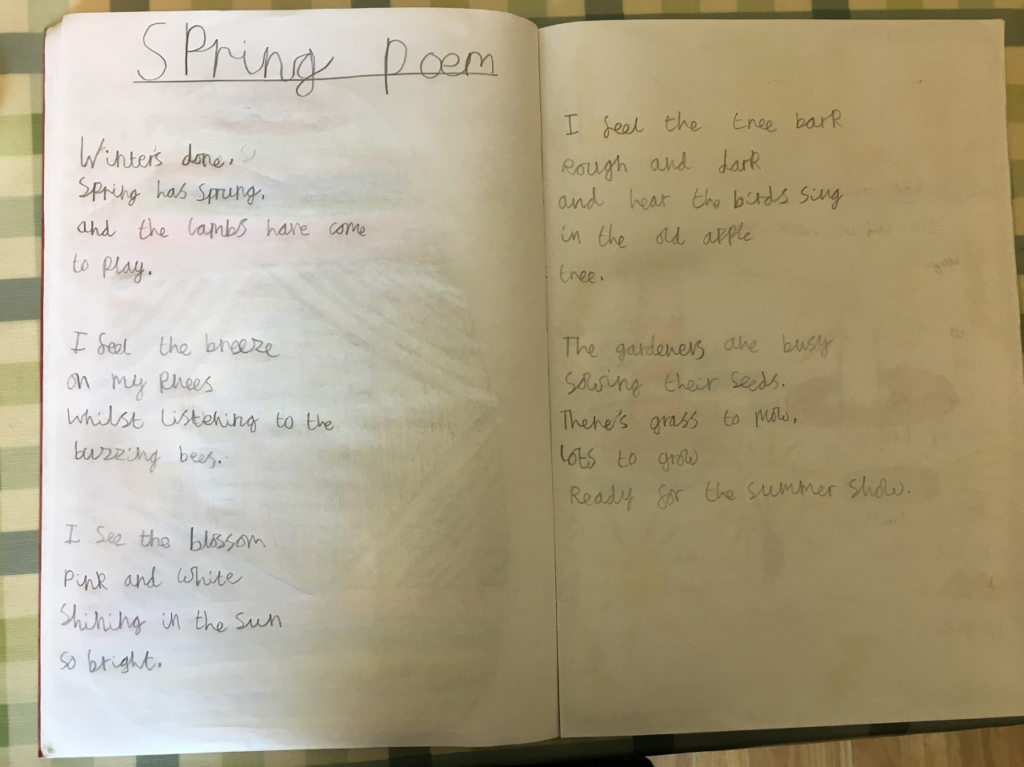 Spring poem
Winter's done.
Spring has sprung.
and the lambs have come
to play.
I feel the breeze
on my knees
whilst listening to the
buzzing bees.
I see the blossom
Pink and white
Shining in the sun
so bright.
I feel the tree bark
Rough and dark
and hear the birds sing
in the old apple
tree.
The gardeners are busy
Sowing their seeds.
There's grass to mow.
lots to grow
Ready for the summer show.